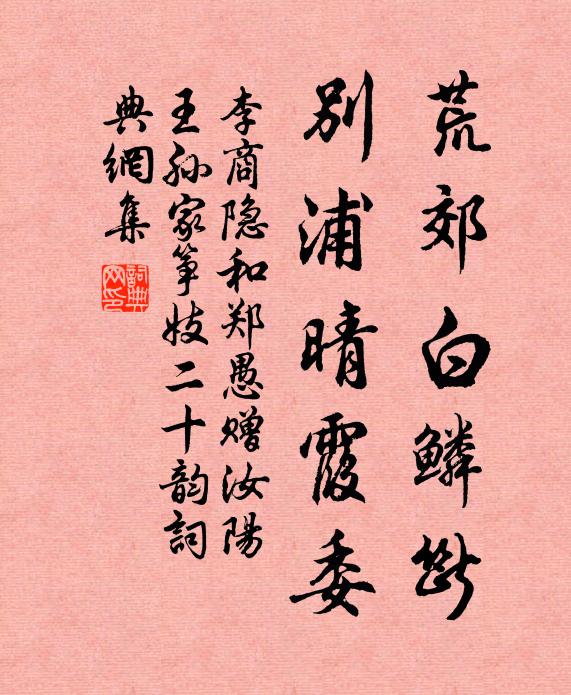 荒郊白鳞断
别浦晴霞委
李商隐和郑愚赠汝陽
王孙家筝妓二十韵詞
典網集
詞典网印